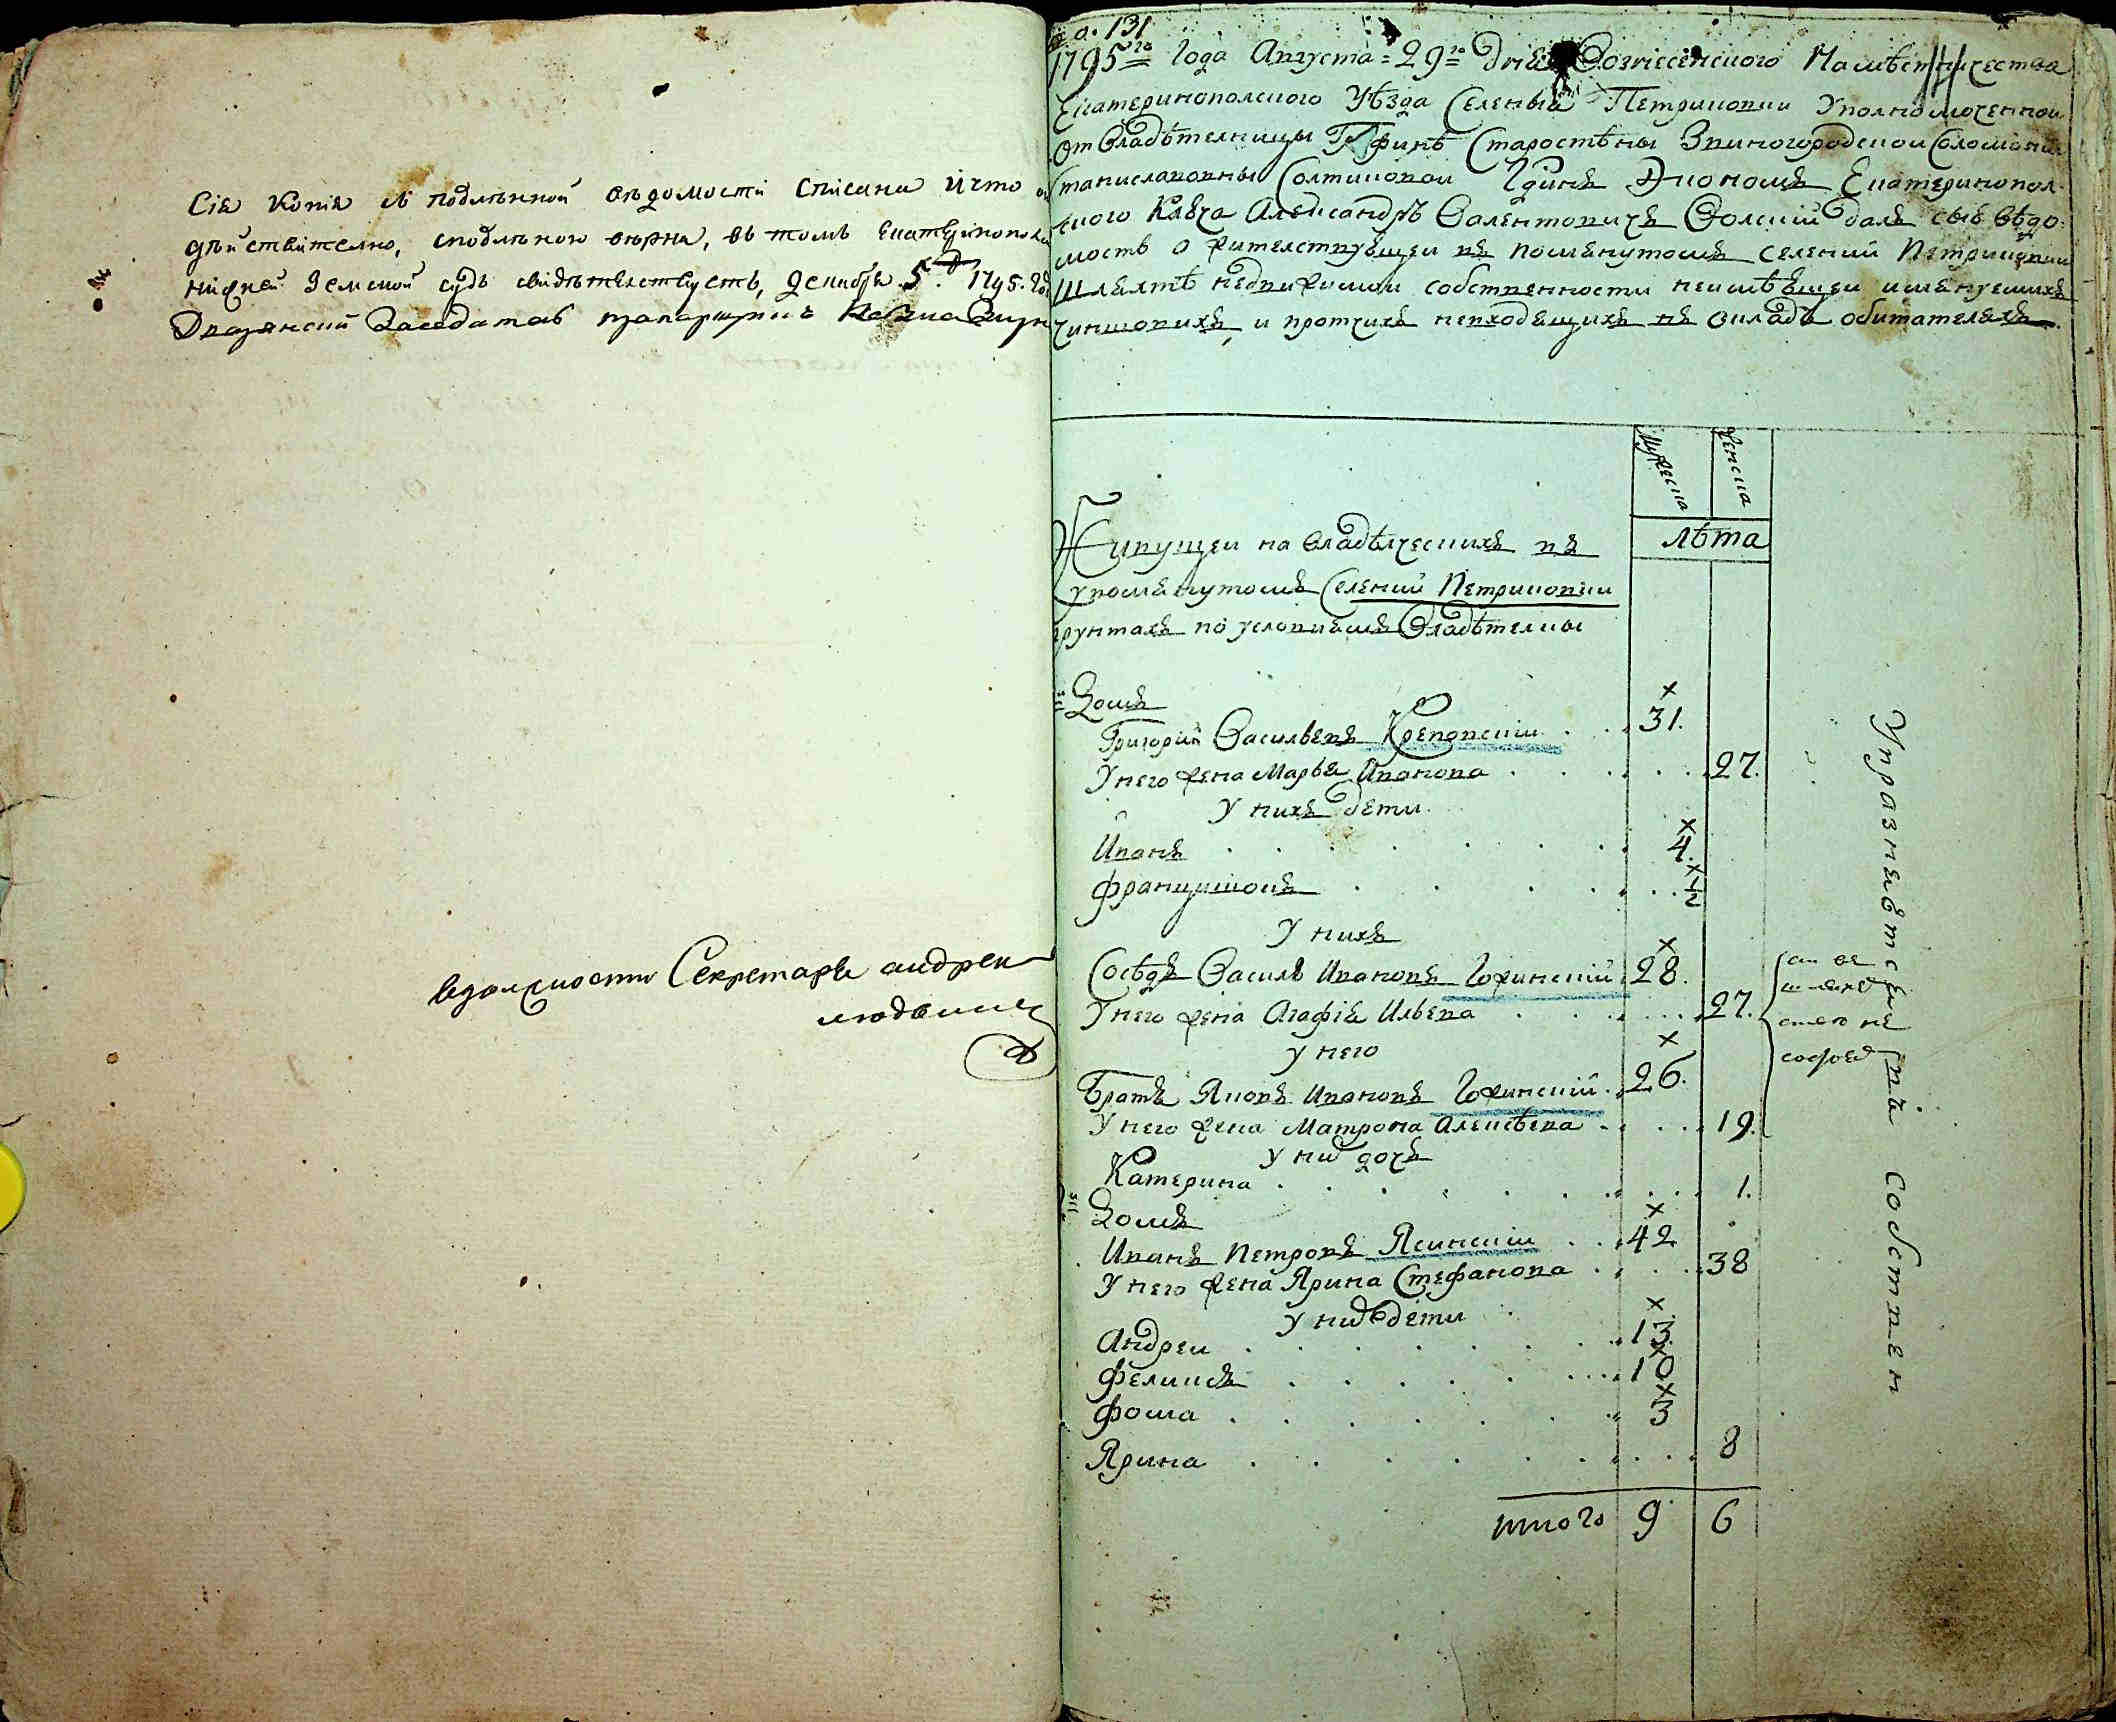 Сія копія съ подлѣнной вѣдомости списана и что
дѣйствително, сподлѣною вѣрна, въ томъ Екатеринопол
нижней земской судъ свидѣтелствуетъ, декабря 5. д. 1795. го
Дворянский Заседатель прапорщикъ
вдолжности Секретаря андреи
131
1795го года Августа 29го дня Вознесенского Наместничества
Екатеринополского Уѣзда Селеныя Петриковки Уполномоченнои
от Владѣтелницы Старостѣны Звиногородскои Соломони
Станиславовны Солтиковои Економъ Екатеринопол
ского Ключа Александръ Валентовичъ Волский далъ сыю вѣдо
мость о жителствующеи въ помянутомъ селении Петриковки
Шляхтѣ недвижимои собственности неимѣющеи именуемихъ
чиншовихъ, и протчихъ невходящихъ въ окладъ обитателяхъ
Мужеска
Женска
лѣта
Живущеи на владѣлческихъ въ
упомянутомъ Селении Петриковки
грунтахъ по условиямъ Владѣтелны
Домъ
Григории Васильевъ Креповский 31.
У него жена Марья Иванова 27.
У нихъ дети
Иванъ 4.
Францишокъ 1/2
У нихъ
Сосѣдъ Василь Ивановъ Гожинский 28.
У него жена Агафия Ильева 27.
у него
Братъ Яковъ Ивановъ Гожинский 26.
У него жена Матрона Алексѣева 19.
У них дочъ
Катерина 1.
Домъ
Иванъ Петровъ Ясинский 42
У него жена Ярина Стефанова 38
у них дети
Андреи 13.
Феликсъ 10
Фома 3
Ярина 8
итого 9 6
Упразняется въ собствен